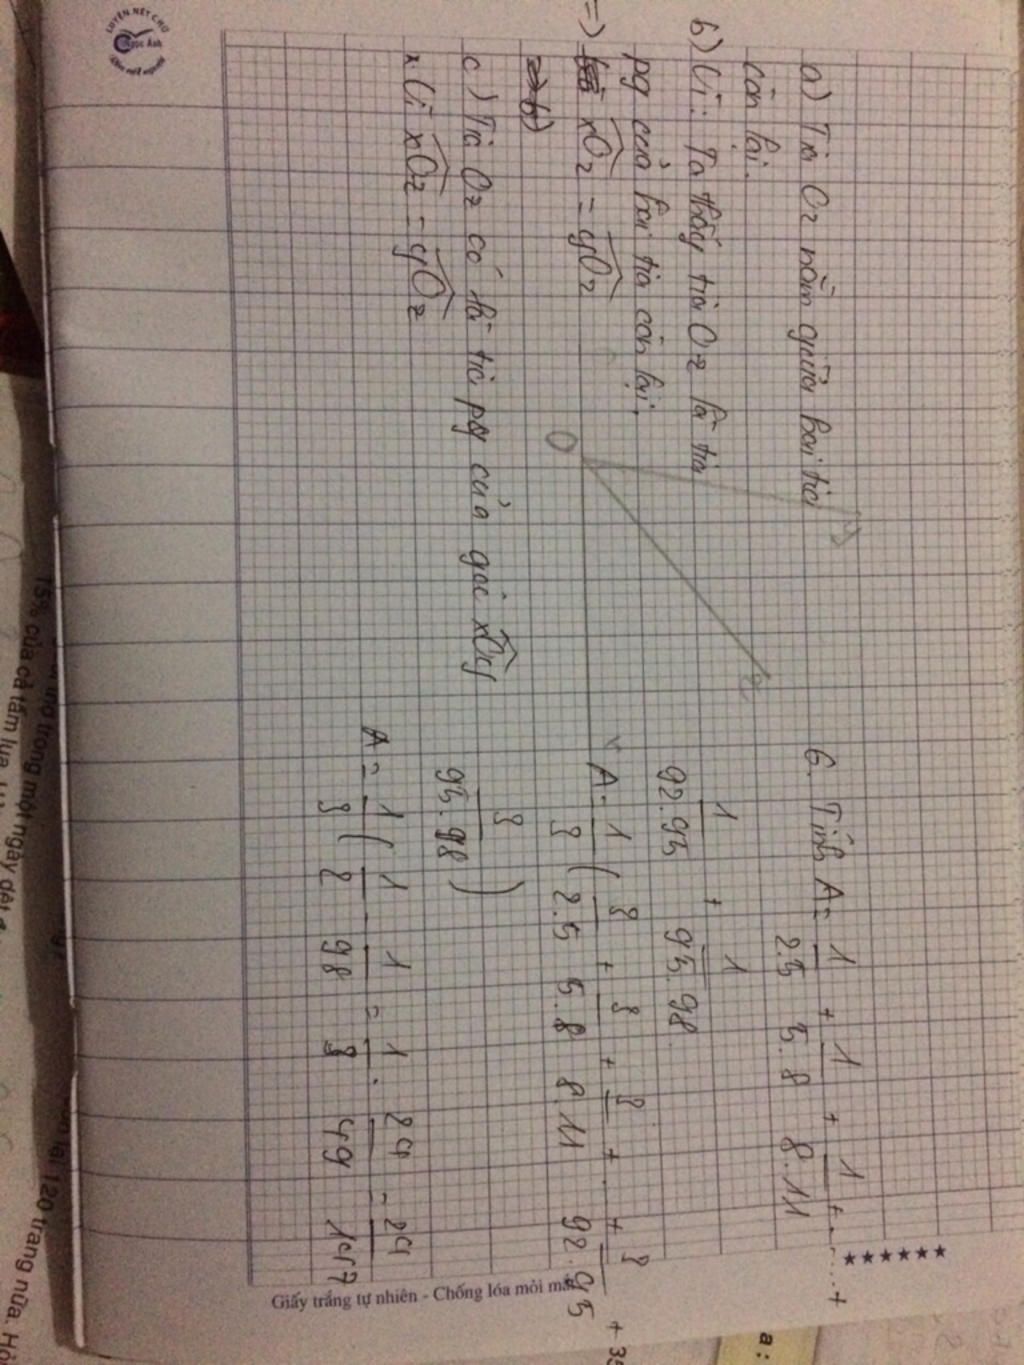 a) Tia Oz nằm giữa hai tia
còn lại.
b) Vì: Ta thấy tia Oz là tia
pg của hai tia còn lại.
=> xOz = yOz
c) Tia Oz có là tia pg của góc xOy
x Vì xOz = yOz
O
y
z
x
6. Tính A = 1/2.5 + 1/5.8 + 1/8.11 + ..... +
1/92.95 + 1/95.98
A = 1/3 ( 3/2.5 + 3/5.8 + 3/8.11 + ... + 3/92.95 +
3/95.98 )
A = 1/3 ( 1/2 - 1/98 = 1/3 . 24/49 = 24/147
★★★★★★
Giấy trắng tự nhiên - Chống lóa mỏi mắt
LUYỆN NÉT CHỮ
Ngọc Ánh
15% của cả tấm lụa.
trong một ngày dệt
lại 120 trang nữa. Hỏi
a :